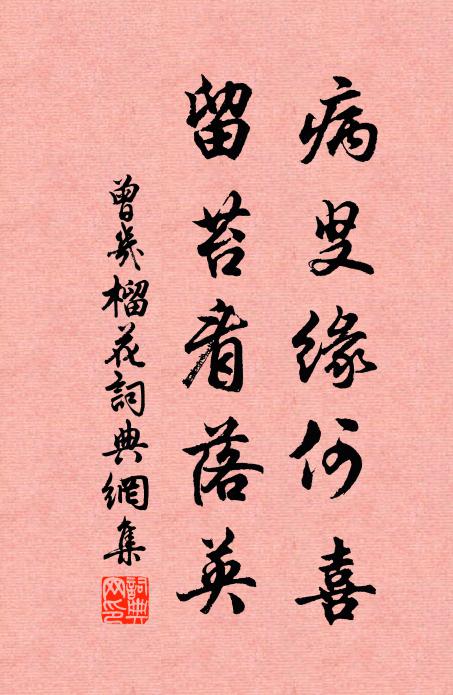 病叟缘何喜
留苔看落英
曾幾榴花詞典網集
詞典网印